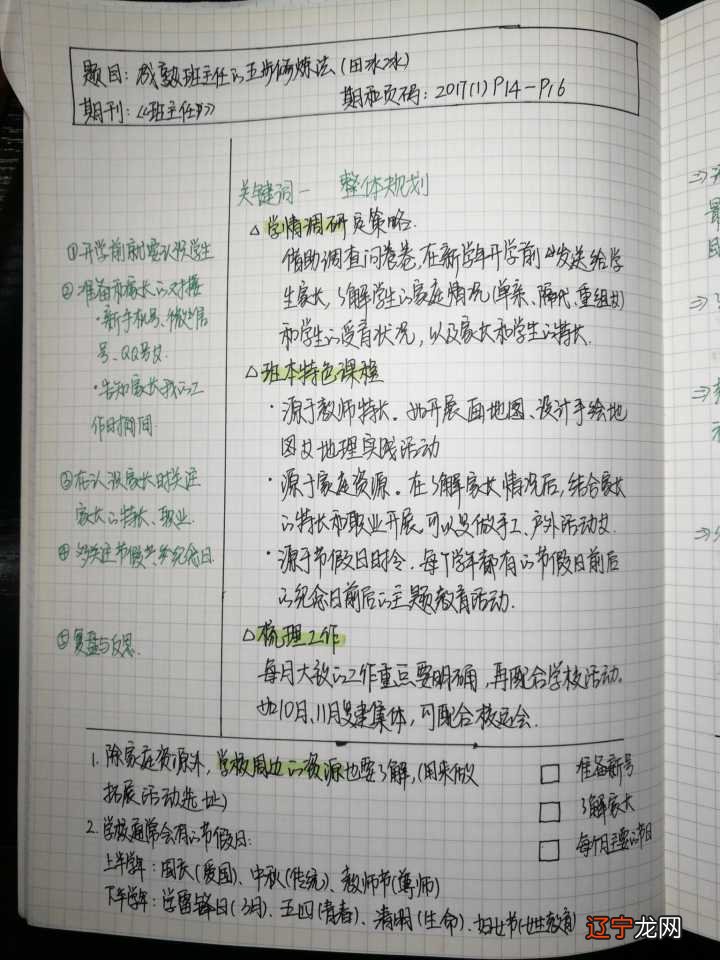 题目：成熟班主任的五步修炼法（田冰冰）
期刊：《班主任》
期和页码：2017(1) P14-P16
①开学前就要认识学生
②准备和家长的对接
·新手机号、微信
号、QQ号等.
·告知家长我的工
作时间
③在认识家长时关注
家长的特长、职业.
④多关注节假日、纪念日
⑤复盘与反思.
关键词一 整体规划
△学情调研定策略.
借助调查问卷,在新学年开学前发送给学
生家长,了解学生的家庭情况(单亲、隔代、重组等)
和学生的受育状况,以及家长和学生的特长.
△班本特色课程
·源于教师特长.如开展画地图、设计手绘地
图等地理实践活动
·源于家庭资源.在了解家长情况后,结合家长
的特长和职业开展,可以是做手工、户外活动等.
·源于节假日时令.每个学年都有的节假日前后
的纪念日前后的主题教育活动.
△梳理工作
每月大致的工作重点要明确,再配合学校活动.
如10月、11月是建集体,可配合校运会.
1.除家庭资源外,学校周边的资源也要了解,(用来做
拓展活动选址)
2.学校通常会有的节假日:
上半学年:国庆(爱国)、中秋(传统)、教师节(尊师)
下半学年:学雷锋日(3月)、五四(青春)、清明(生命)、妇女节(女性教育)
□ 准备新号
□ 了解家长
□ 每个月主要的节日
辽宁龙网